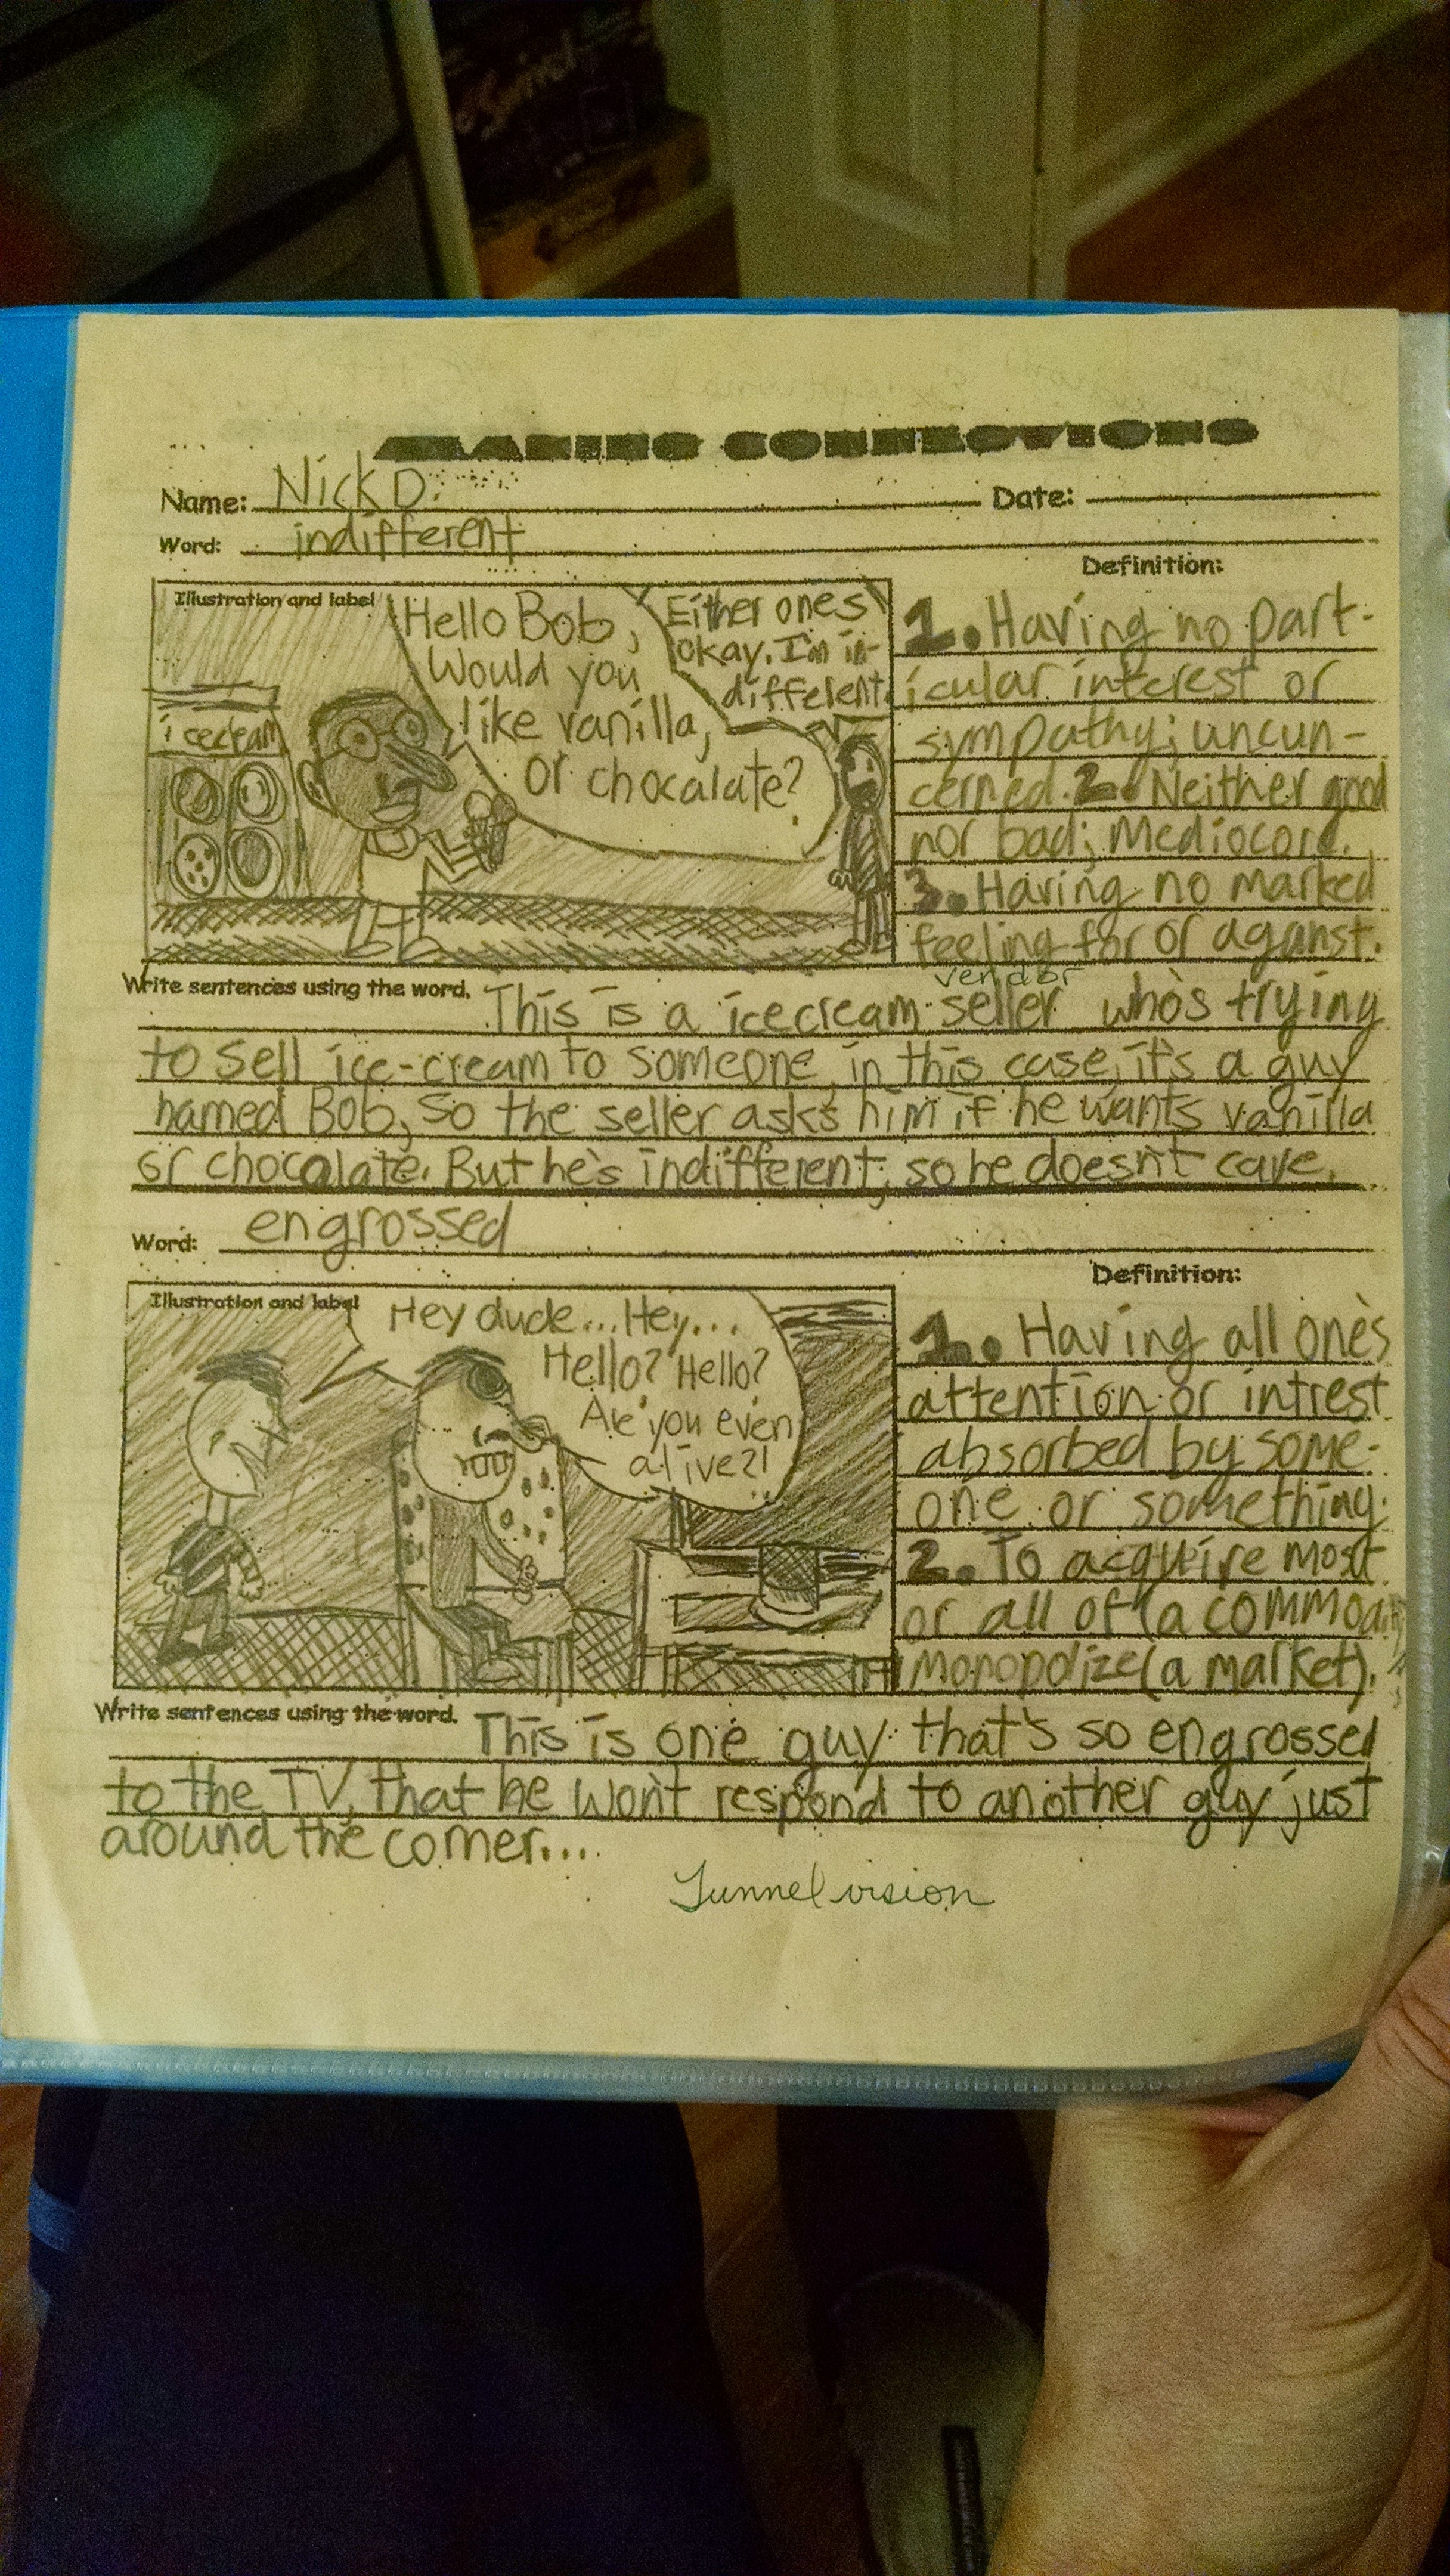 MAKING CONNECTIONS
Name: Nick D. Date:
Word: indifferent
Definition:
Illustration and label
Hello Bob,
Would you
like vanilla,
or chocalate?
Either ones
okay. I'm in-
different.
icecream
1. Having no part-
icular interest or
sympathy; uncun-
cerned. 2. Neither good
nor bad; Mediocore.
3. Having no marked
feeling for or aganst.
vendor
Write sentences using the word. This is a icecream seller who's trying
to sell ice-cream to someone, in this case, it's a guy
named Bob, so the seller asks him if he wants vanilla
or chocolate. But he's indifferent, so he doesn't care.
Word: engrossed
Definition:
Illustration and label
Hey dude... Hey...
Hello? Hello?
Are you even
alive?!
1. Having all one's
attention or intrest
absorbed by some-
one or something.
2. To acquire most
or all of (a commod
monopolize (a market).
Write sentences using the word. This is one guy that's so engrossed
to the TV, that he won't respond to another guy just
around the corner...
Tunnel vision